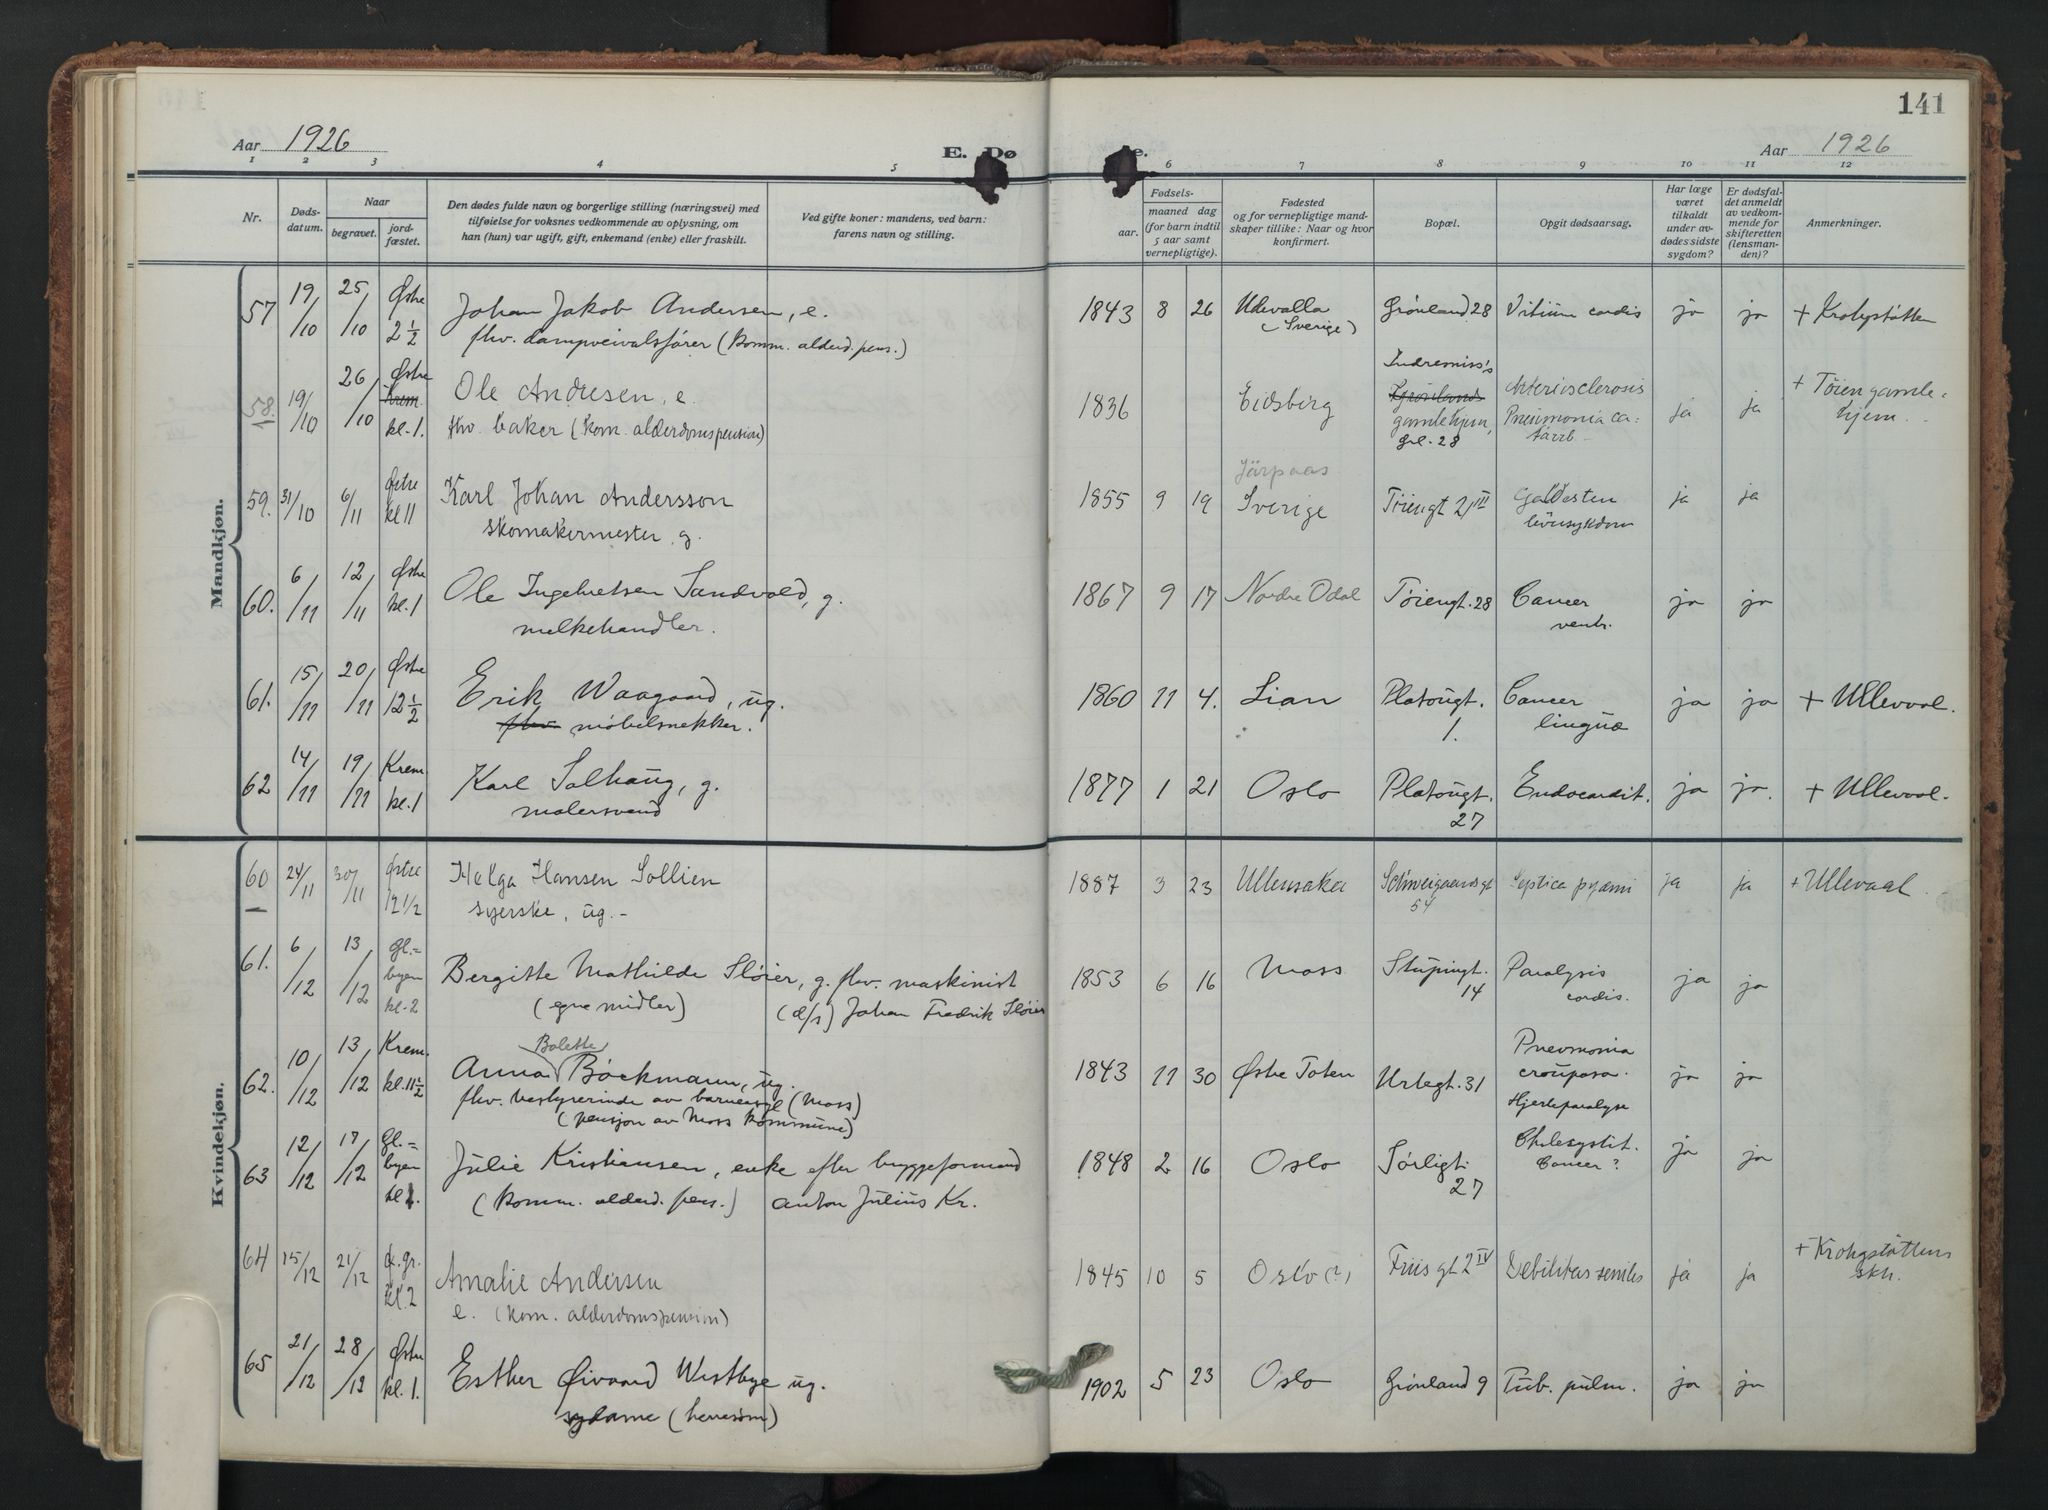 141
Aar 1926
E. Dø
e.
Aar 1926
1 2 3 4 5 6 7 8 9 10 11 12
Nr.
Døds-
datum.
Naar
begravet.
jord-
fæstet.
Den dødes fulde navn og borgerlige stilling (næringsvei) med
tilføielse for voksnes vedkommende av oplysning, om
han (hun) var ugift, gift, enkemand (enke) eller fraskilt.
Ved gifte koner: mandens, ved barn:
farens navn og stilling.
Fødsels-
aar.
maaned dag
(for barn indtil
5 aar samt
vernepligtige).
Fødested
og for vernepligtige mand-
skaper tillike: Naar og hvor
konfirmert.
Bopæl.
Opgit dødsaarsag.
Har læge
været
tilkaldt
under av-
dødes sidste
sygdom?
Er dødsfal-
det anmeldt
av vedkom-
mende for
skifteretten
(lensman-
den)?
Anmerkninger.
Mandkjøn.
57 19/10 25/10 Østre 2½ Johan Jakob Andersen, e. 1843 8 26 Udevalla Grønland 28 Vitium cordis ja ja + Krohgstøtten
fhv. dampveivalsfører (komm. alderd. pens.) (Sverige)
58. 19/10 26/10 Østre Krem. kl. 1. Ole Andresen, e. 1836 Eidsberg Indremiss's Grønlands gamlehjem, Grl. 28 Arteriosclerosis Pneumonia ca-tarrh ja ja + Tøien gamle-
fhv. baker (kom. alderdomspension) hjem.
59. 31/10 6/11 Østre kl 11 Karl Johan Andersson 1855 9 19 Järpaas Sverige Tøiengt 21 III Galdesten ja ja
skomakermester, g. leversykdom
60. 6/11 12/11 Østre kl. 1 Ole Ingebretsen Sandvold, g. 1867 9 17 Nordre Odal Tøiengt. 28 Cancer ja ja
melkehandler. ventr.
61. 15/11 20/11 Østre 12½ Erik Waagaard, ug. 1860 11 4. Lian Platougt. 1. Cancer ja ja + Ullevaal.
fhv. møbelsnekker. linguæ
62 14/11 19/11 Krem. kl. 1 Karl Solhaug, g. 1877 1 21 Oslo Platougt. 27 Endocardit. ja ja. + Ullevaal.
malersvend
Kvindekjøn.
60 24/11 30/11 Østre 12 1/2 Helga Hansen Sollien 1887 3 23 Ullensaker Schweigaardsgt 54 Septica pyæmi ja ja + Ullevaal
syerske, ug. -
61. 6/12 13/12 Gl.=byen kl. 2 Bergitte Mathilde Sløier, g. fhv. maskinist 1853 6 16 Moss Stupingt. 14 Paralysis ja ja
(egne midler) (d/s) Johan Fredrik Sløier cordis.
62. 10/12 13/12 Krem. kl. 11½ Anna Bolette Bøckmann, ug. 1843 11 30 Østre Toten Urtegt. 31 Pneumonia crouposa. ja ja
fhv. bestyrerinde av barneasyl (Moss) Hjerteparalyse
(pensjon av Moss kommune)
63 12/12 17/12 Gl.=byen kl 1. Julie Kristiansen, enke efter bryggeformand 1848 2 16 Oslo Sørligt. 27 Cholesystit. ja ja
(komm. alderd. pens.) Anton Julius Kr. Cancer?
64 15/12 21/12 Ø. gr. Kl. 2 Amalie Andersen 1845 10 5 Oslo (?) Friis gt 2 IV Debilitas senilis ja ja + Krohgstøttens
e. (kom. alderdomspension) skh.
65 21/12 28/12 Østre kl. 1. Esther Øivard Westbye ug. 1902 5 23 Oslo Grønland 9 Tub. pulm. ja ja
sydame (herresøm)